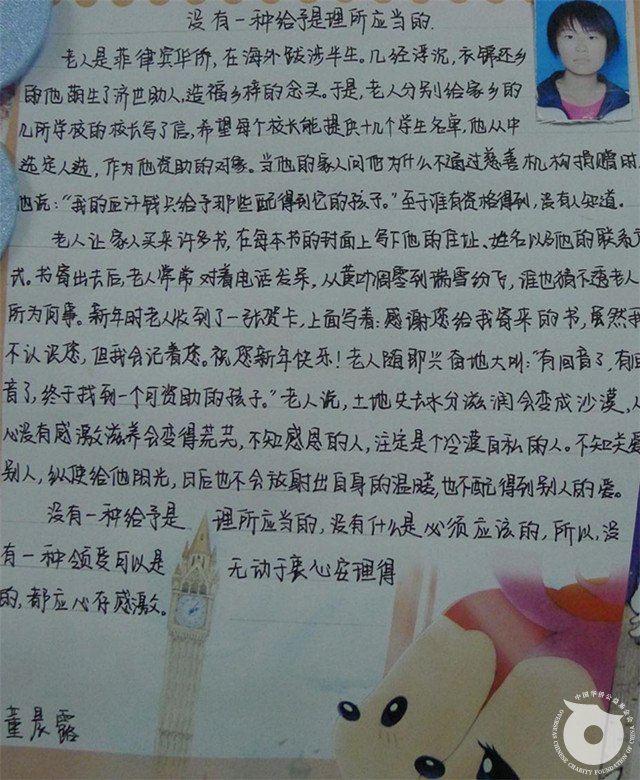 没有一种给予是理所应当的.
老人是菲律宾华侨,在海外跋涉半生。几经浮沉,衣锦还乡
的他萌生了济世助人,造福乡梓的念头。于是,老人分别给家乡的
几所学校的校长写了信,希望每个校长能提供十几个学生名单,他从中
选定人选,作为他资助的对象。当他的家人问他为什么不通过慈善机构捐赠时,
他说:“我的血汗钱只给予那些配得到它的孩子。”至于谁有资格得到,没有人知道。
老人让家人买来许多书,在每本书的封面上写下他的住址、姓名以及他的联系方
式。书寄出去后,老人常常对着电话发呆,从黄叶凋零到瑞雪纷飞,谁也猜不透老人
所为何事。新年时老人收到了一张贺卡,上面写着:感谢您给我寄来的书,虽然我
不认识您,但我会记着您。祝您新年快乐!老人随即兴奋地大叫:“有回音了,有回
音了,终于找到一个可资助的孩子。”老人说,土地失去水分滋润会变成沙漠,人
心没有感激滋养会变得荒芜,不知感恩的人,注定是个冷漠自私的人。不知关爱
别人,纵使给他阳光,日后也不会放射出自身的温暖,也不配得到别人的爱。
没有一种给予是 理所应当的,没有什么是必须应该的,所以,没
有一种领受可以是 无动于衷心安理得
的,都应心存感激。
董晨露
中国华侨公益基金会
OVERSEAS CHINESE CHARITY FOUNDATION OF CHINA